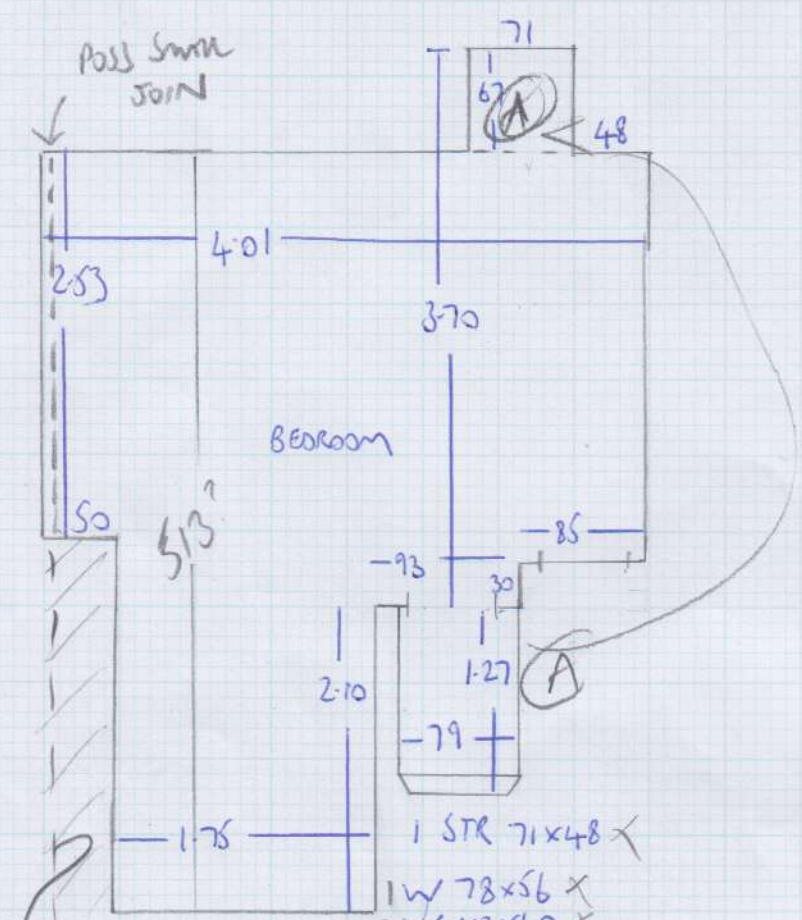 71
POSS SMALL
JOIN
67
A
48
4.01
2.53
3.70
BEDROOM
50
513?
-85
-93
30
2.10
1.27
A
-79
1.75
1 STR 71x48 X
1W 78x56 X